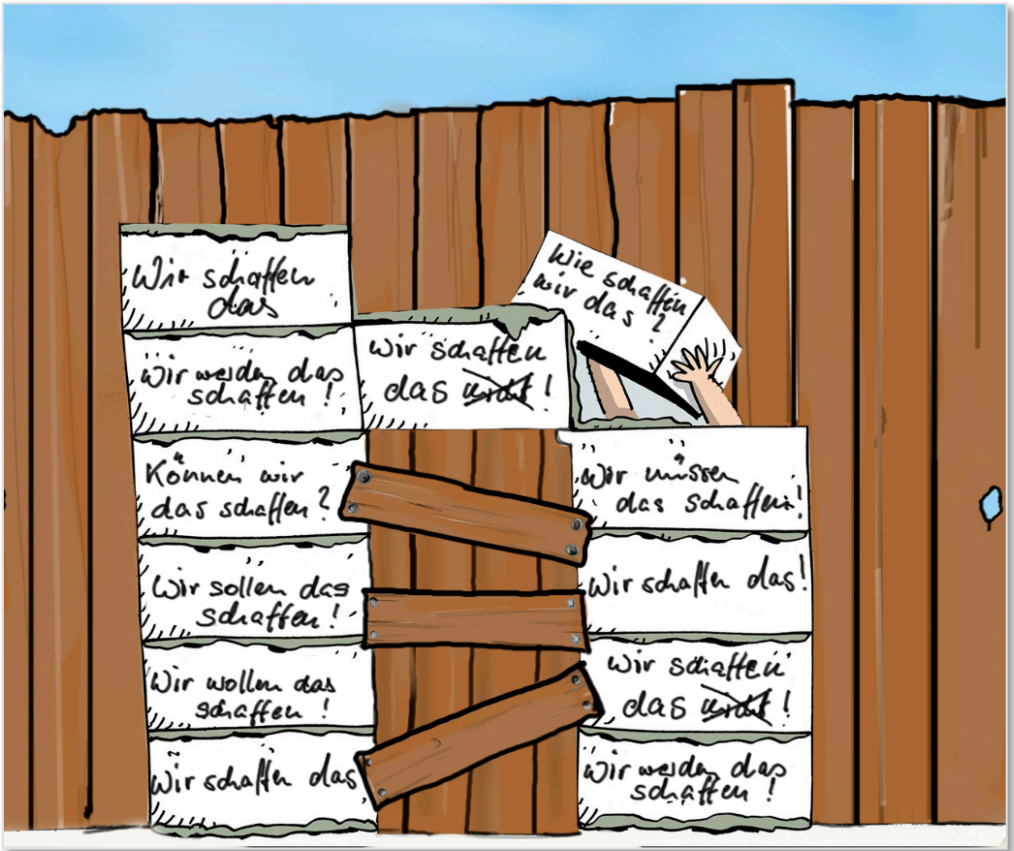 Wir schaffen
das
Wir werden das
schaffen !
Können wir
das schaffen ?
Wir sollen das
schaffen !
Wir wollen das
schaffen !
Wir schaffen das
Wir schaffen
das nicht !
Wie schaffen
wir das ?
Wir müssen
das schaffen!
Wir schaffen das!
Wir schaffen
das nicht !
Wir werden das
schaffen !